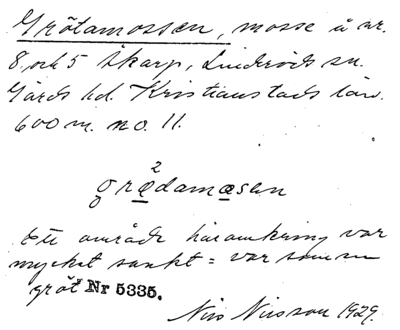 Grötamossen, mosse å nr.
8 och 5 Skarp, Linderöds sn.
Gärds hd. Kristianstads län.
600 m. n.o. 11.
2
grædamæsen
Ett område häromkring var
mycket sankt = var som en
gröt Nr 5335.
Nils Nilsson 1929.